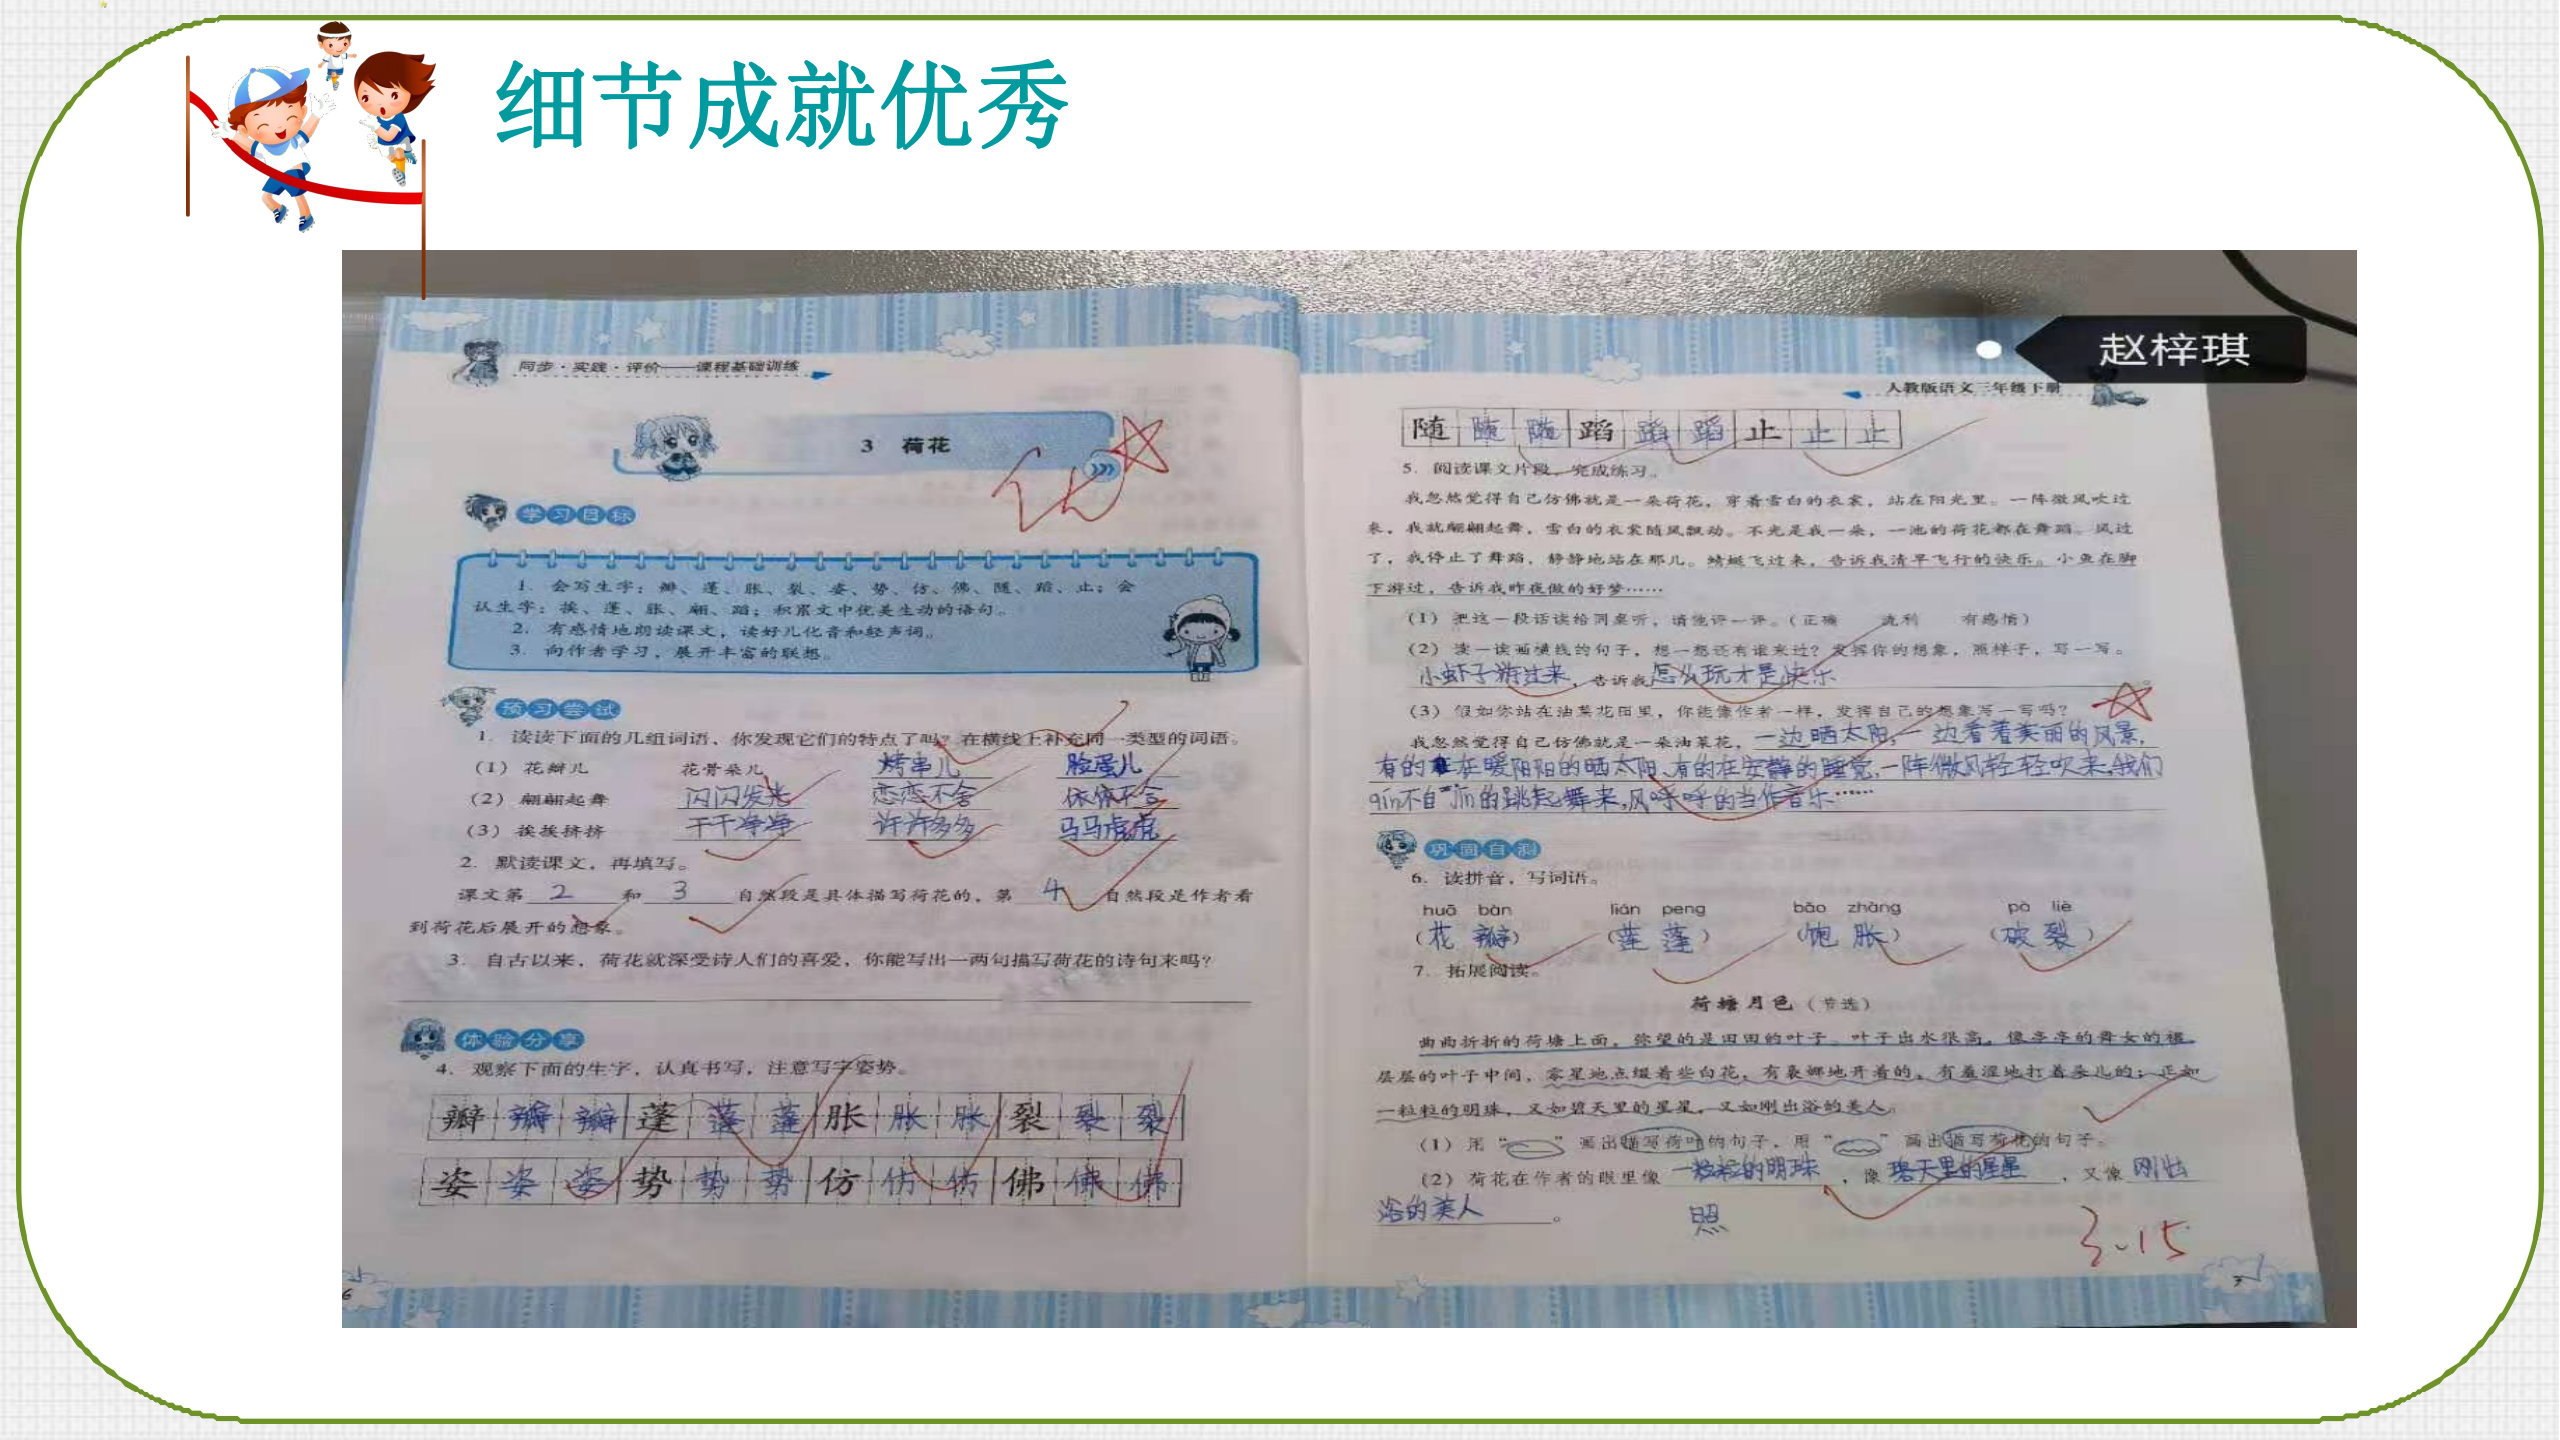 细节成就优秀
赵梓琪
同步·实践·评价——课程基础训练
3 荷花
优
学习目标
1. 会写生字：瓣、蓬、胀、裂、姿、势、仿、佛、随、蹈、止；会
认生字：挨、莲、胀、翩、蹈；积累文中优美生动的语句。
2. 有感情地朗读课文，读好儿化音和轻声词。
3. 向作者学习，展开丰富的联想。
预习尝试
1. 读读下面的几组词语，你发现它们的特点了吗？在横线上补充同一类型的词语。
（1）花瓣儿 花骨朵儿 烤串儿 脸蛋儿
（2）翩翩起舞 闪闪发光 恋恋不舍 依依不舍
（3）挨挨挤挤 干干净净 许许多多 马马虎虎
2. 默读课文，再填写。
课文第 2 和 3 自然段是具体描写荷花的，第 4 自然段是作者看
到荷花后展开的想象。
3. 自古以来，荷花就深受诗人们的喜爱，你能写出一两句描写荷花的诗句来吗？
体验分享
4. 观察下面的生字，认真书写，注意写字姿势。
瓣 瓣 瓣 蓬 蓬 蓬 胀 胀 胀 裂 裂 裂
姿 姿 姿 势 势 势 仿 仿 仿 佛 佛 佛
6
人教版语文三年级下册
随 随 随 蹈 蹈 蹈 止 止 止
5. 阅读课文片段，完成练习。
我忽然觉得自己仿佛就是一朵荷花，穿着雪白的衣裳，站在阳光里。一阵微风吹过
来，我就翩翩起舞，雪白的衣裳随风飘动。不光是我一朵，一池的荷花都在舞蹈。风过
了，我停止了舞蹈，静静地站在那儿。蜻蜓飞过来，告诉我清早飞行的快乐。小鱼在脚
下游过，告诉我昨夜做的好梦……
（1）把这一段话读给同桌听，请他评一评。（正确 流利 有感情）
（2）读一读画横线的句子，想一想还有谁来过？发挥你的想象，照样子，写一写。
小虾子游过来，告诉我怎么玩才是快乐
（3）假如你站在油菜花田里，你能像作者一样，发挥自己的想象写一写吗？
我忽然觉得自己仿佛就是一朵油菜花，一边晒太阳，一边看着美丽的风景，
有的在暖阳阳的晒太阳、有的在安静的睡觉，一阵微风轻轻吹来，我们
qín不自jīn的跳起舞来，风呼呼的当作音乐……
巩固自测
6. 读拼音，写词语。
huā bàn lián peng bǎo zhàng pò liè
（花 瓣） （莲 蓬） （饱 胀） （破 裂）
7. 拓展阅读。
荷塘月色（节选）
曲曲折折的荷塘上面，弥望的是田田的叶子。叶子出水很高，像亭亭的舞女的裙。
层层的叶子中间，零星地点缀着些白花，有袅娜地开着的，有羞涩地打着朵儿的；正如
一粒粒的明珠，又如碧天里的星星，又如刚出浴的美人。
（1）用“ ”画出描写荷叶的句子，用“ ”画出描写荷花的句子。
（2）荷花在作者的眼里像 一粒粒的明珠 ，像 碧天里的星星 ，又像 刚出
浴的美人 。
照
3.15